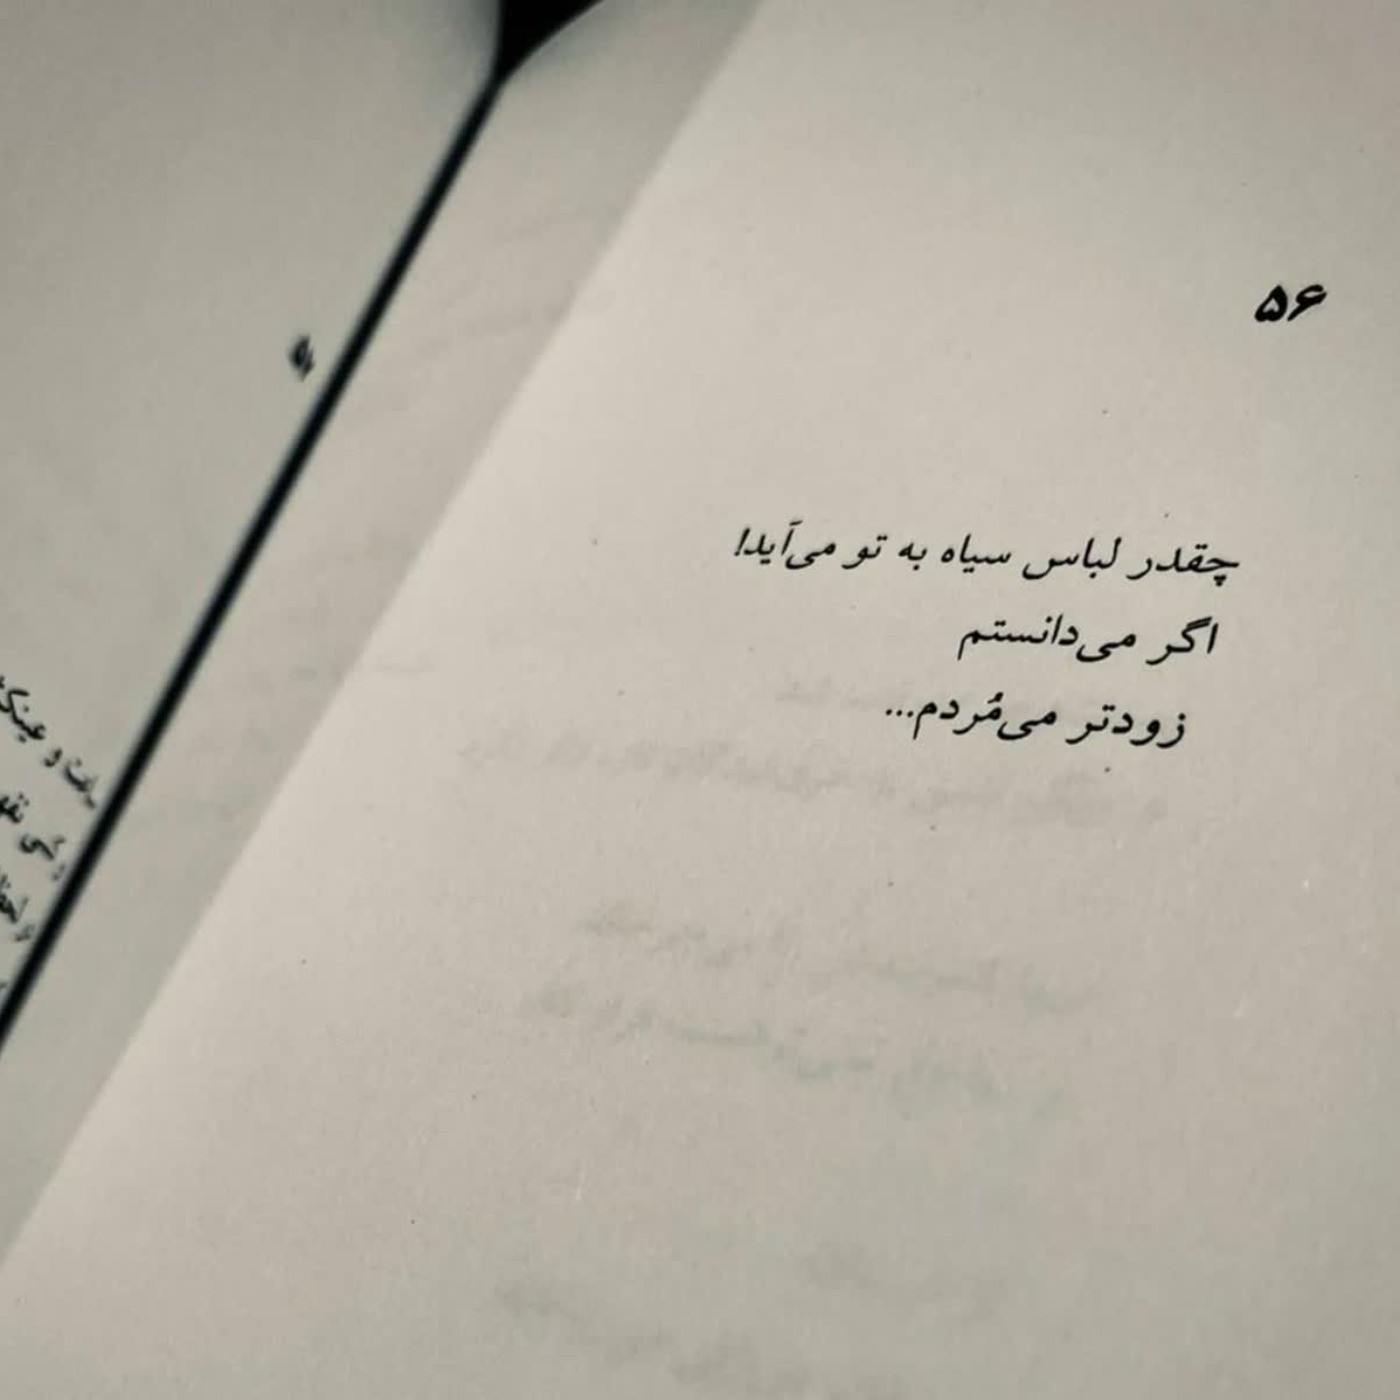 ۵۶
چقدر لباس سیاه به تو می‌آید!
اگر می‌دانستم
زودتر می‌مُردم...
و عینک